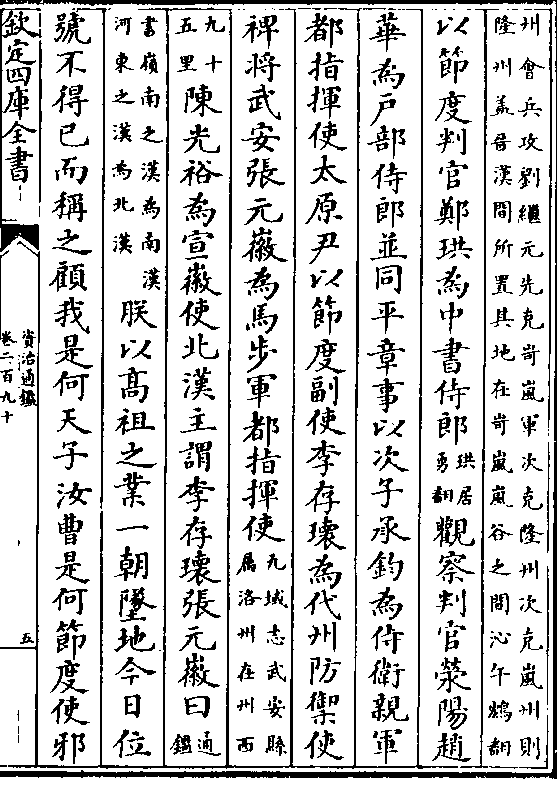 州會兵攻劉繼元先克岢嵐軍次克隆州次克嵐州則
隆州蓋晉漢間所置其地在岢嵐嵐谷之間沁午鴆翻
以節度判官鄭珙為中書侍郎
珙居
勇翻
觀察判官滎陽趙
華為戶部侍郎並同平章事以次子承鈞為侍衛親軍
都指揮使太原尹以節度副使李存瓌為代州防禦使
裨將武安張元徽為馬步軍都指揮使
九域志武安縣
屬洺州在州西
九十
五里
陳光裕為宣徽使北漢主謂李存瓌張元徽曰
通
鑑
書嶺南之漢為南漢
河東之漢為北漢
朕以高祖之業一朝墜地今日位
號不得已而稱之顧我是何天子汝曹是何節度使邪
欽定四庫全書
資治通鑑
卷二百九十
五